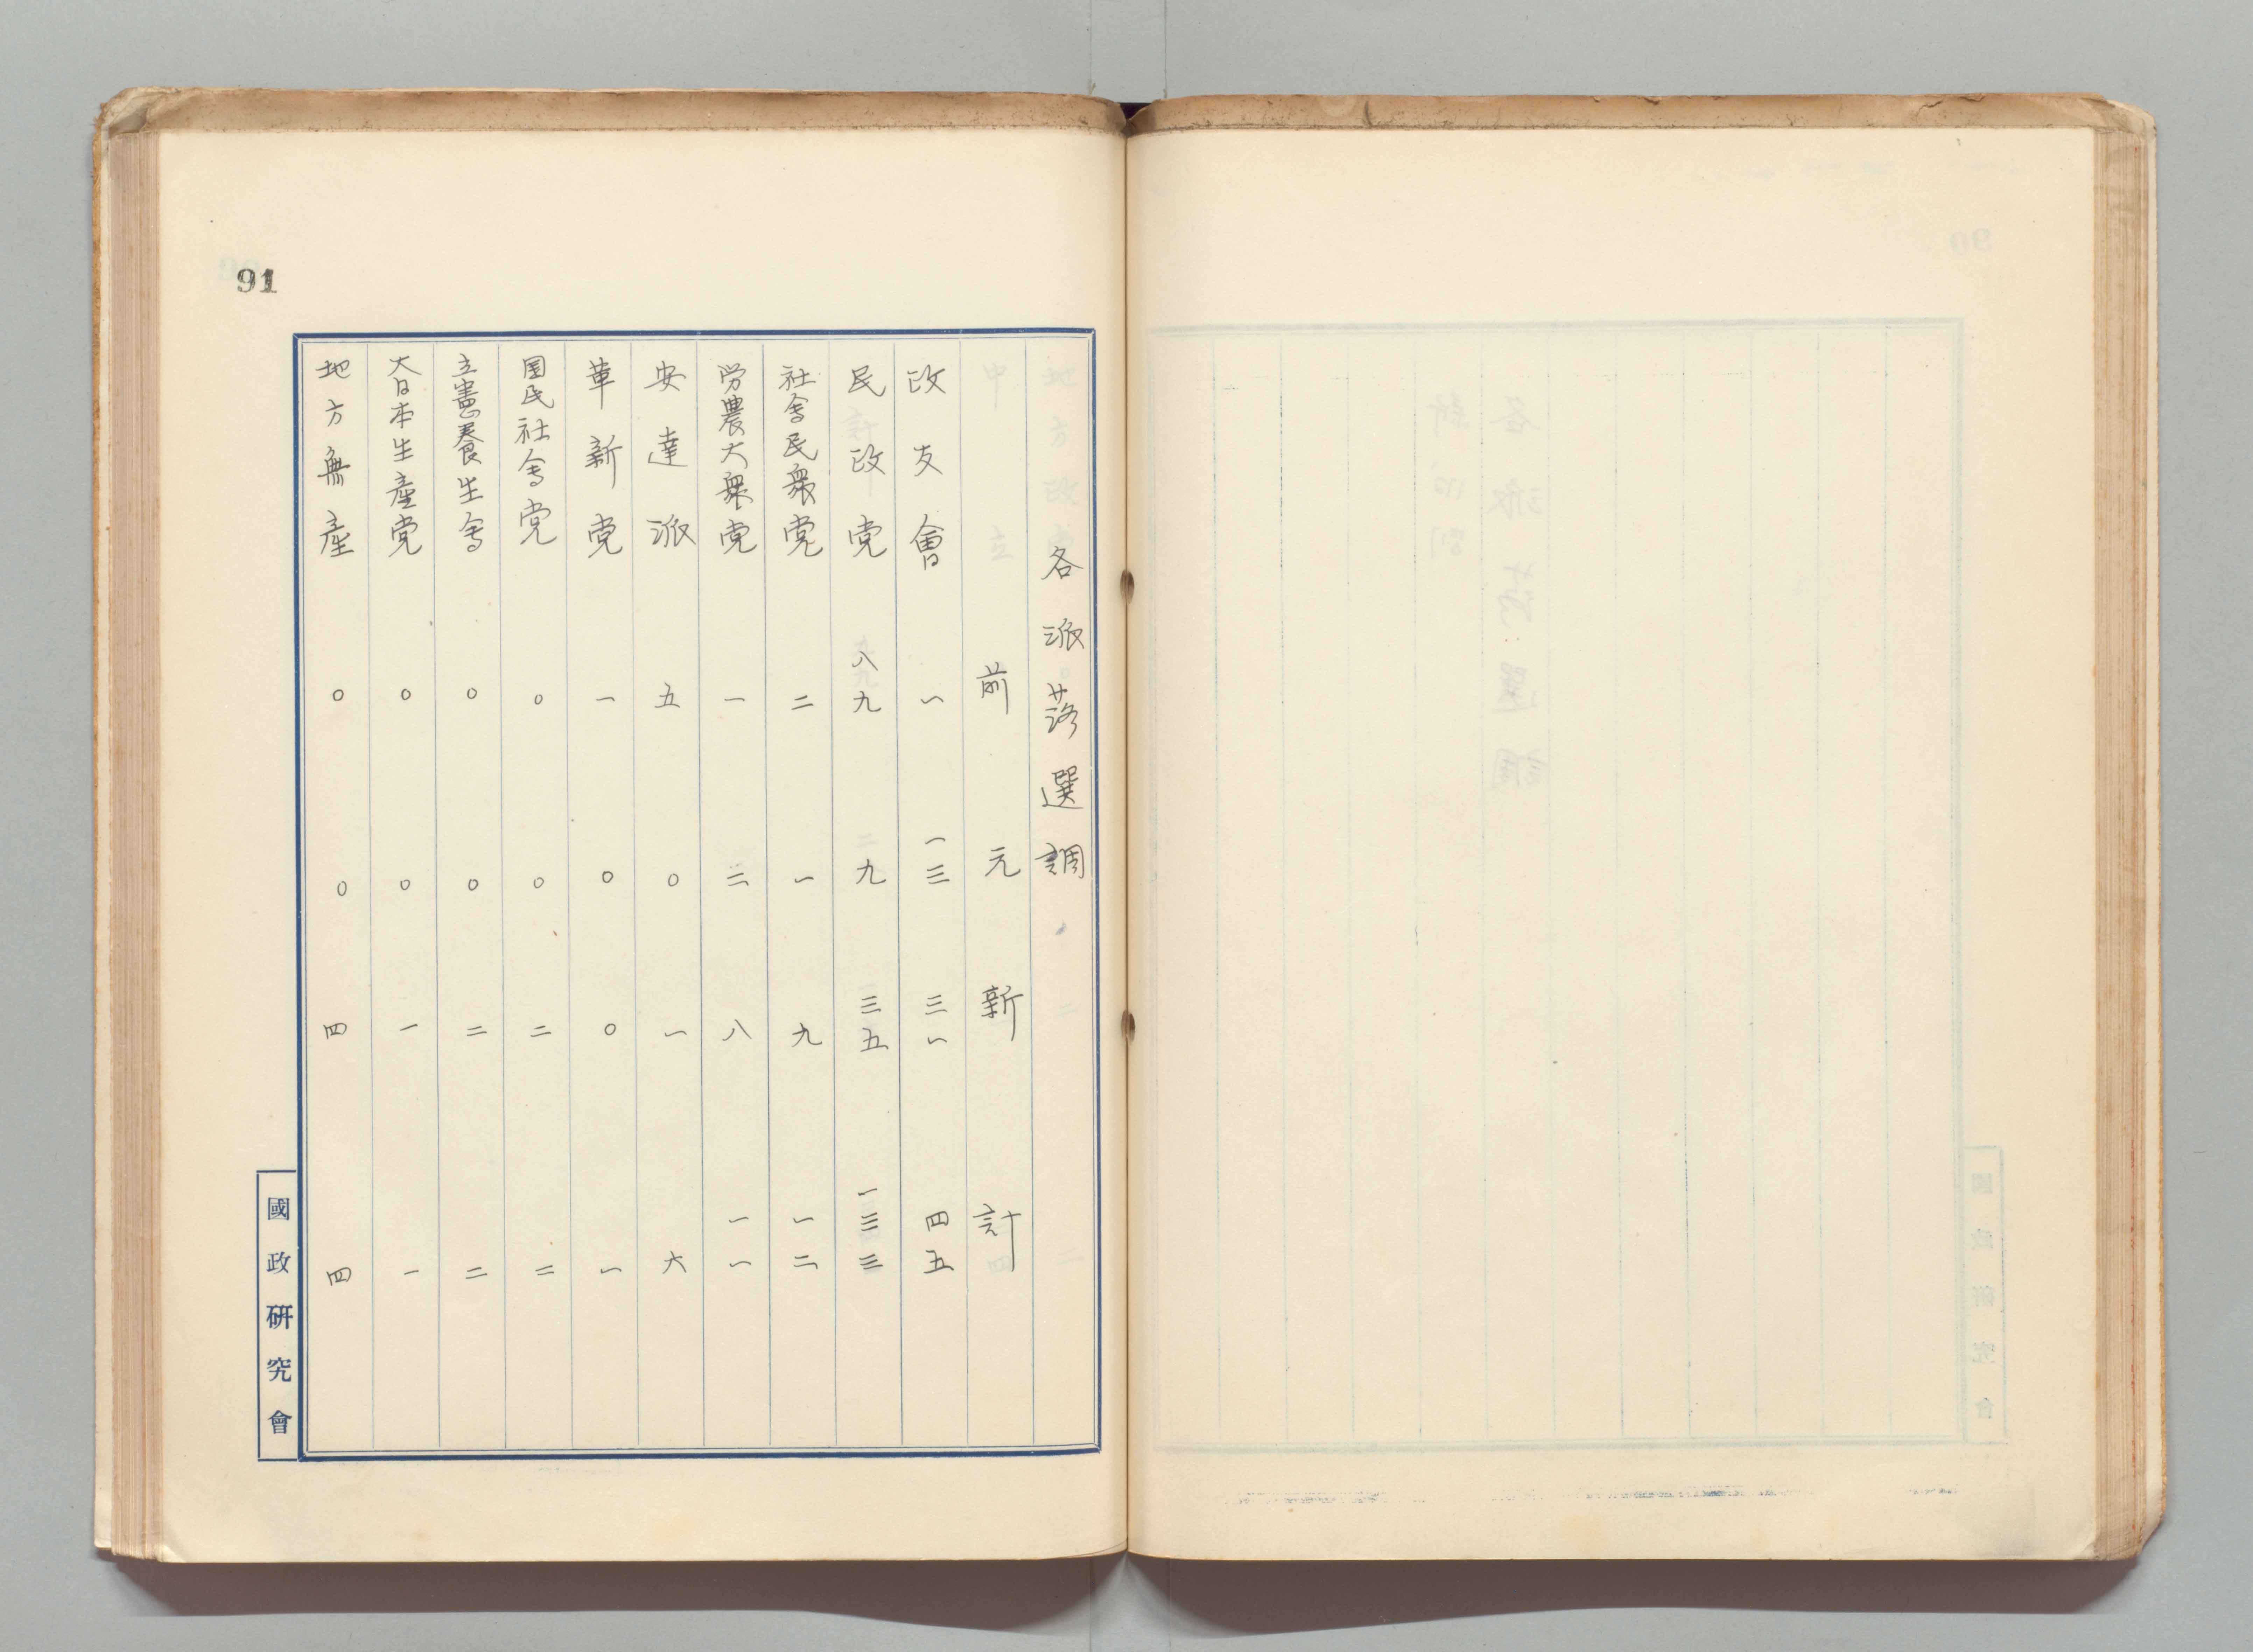 91
各派落選調
前 元 新 計
政友會 一 一三 三一 四五
民政党 八九 九 三五 一三三
社会民衆党 二 一 九 一二
労農大衆党 一 二 八 一一
安達派 五 〇 一 六
革新党 一 〇 〇 一
国民社会党 〇 〇 二 二
立憲養生会 〇 〇 二 二
大日本生産党 〇 〇 一 一
地方無産 〇 〇 四 四
國政研究會